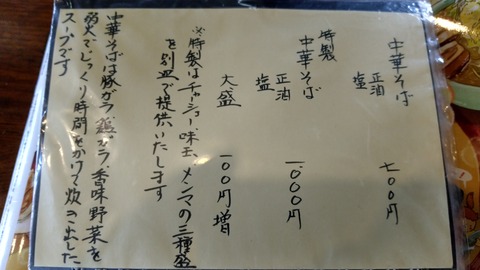 中華そば
正油
塩
七〇〇円
特製
中華そば
正油
塩
一、〇〇〇円
大盛 一〇〇円増
※特製はチャーシュー、味玉、メンマの三種盛
を別皿で提供いたします
中華そばは豚ガラ、鶏ガラ、香味野菜を
弱火でじっくり時間をかけて炊きこわした
スープです